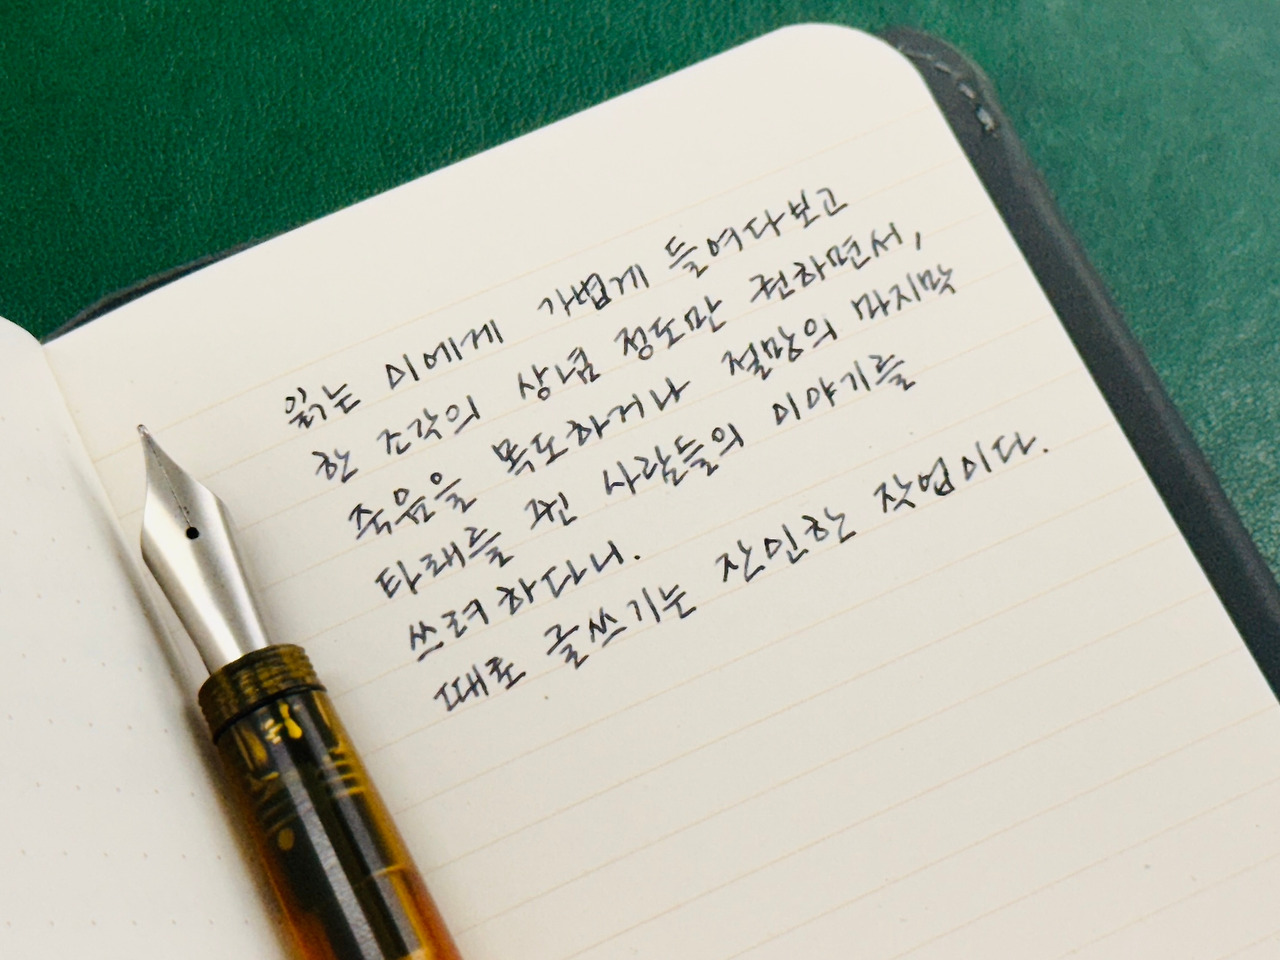 읽는 이에게 가볍게 들여다보고
한 조각의 상념 정도만 권하면서,
죽음을 목도하거나 절망의 마지막
타래를 쥔 사람들의 이야기를
쓰려 하다니.
때로 글쓰기는 잔인한 작업이다.